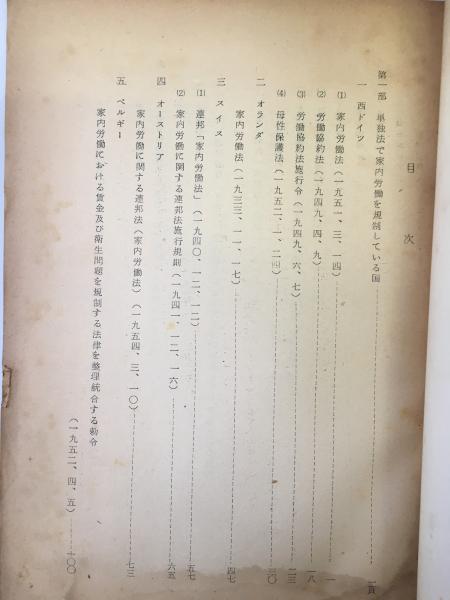 目次
第一部 単独法で家内労働を規制している国 一頁
一 西ドイツ
(1) 家内労働法(一九五一、三、一四) 一
(2) 労働協約法(一九四九、四、九) 一八
(3) 労働協約法施行令(一九四九、六、七) 二三
(4) 母性保護法(一九五二、一、二四) 三〇
二 オランダ
家内労働法(一九三三、一一、一七) 四七
三 スイス
(1) 連邦「家内労働法」(一九四〇、一二、一二) 五七
(2) 家内労働に関する連邦法施行規則(一九四一、一二、一六) 六五
四 オーストリア
家内労働に関する連邦法(家内労働法)(一九五四、三、一〇) 七三
五 ベルギー
家内労働における賃金及び衛生問題を規制する法律を整理統合する勅令
(一九五二、四、五) 一〇〇